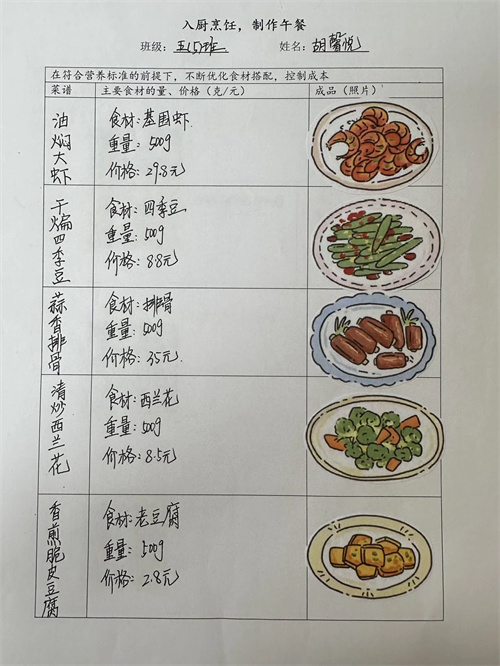 入厨烹饪，制作午餐
班级：五(5)班 姓名：胡馨悦
在符合营养标准的前提下，不断优化食材搭配，控制成本
菜谱 主要食材的量、价格（克/元） 成品（照片）
油焖大虾
食材：基围虾
重量：500g
价格：29.8元
干煸四季豆
食材：四季豆
重量：500g
价格：8.8元
蒜香排骨
食材：排骨
重量：500g
价格：35元
清炒西兰花
食材：西兰花
重量：500g
价格：8.5元
香煎脆皮豆腐
食材：老豆腐
重量：500g
价格：2.8元